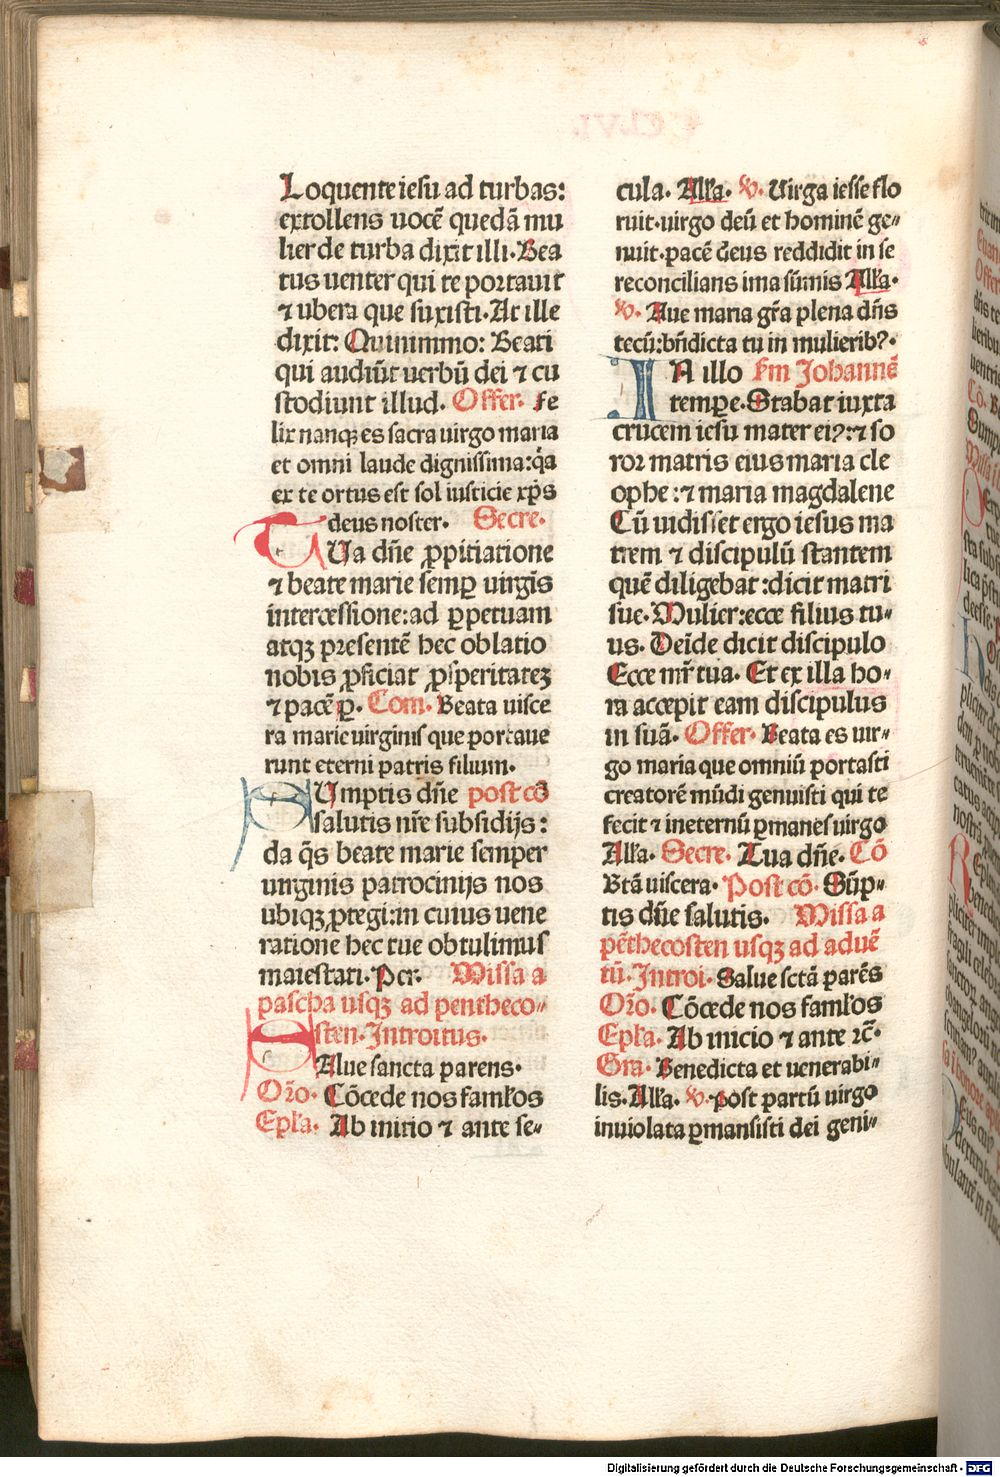 Loquente iesu ad turbas:
extollens uocē quedā mu
lier de turba dixit illi. Bea
tus uenter qui te portauit
⁊ ubera que suxisti. At ille
dixit: Quinimmo: Beati
qui audiūt uerbū dei ⁊ cu
stodiunt illud. Offer. Fe
lix nanqꝫ es sacra uirgo maria
et omni laude dignissima: q̄a
ex te ortus est sol iusticie xp̄s
deus noster. Secre.
TUa dn̄e ꝓpitiatione
⁊ beate marie semꝑ uirgīs
intercessione: ad ꝑpetuam
atqꝫ presentē hec oblatio
nobis ꝓficiat ꝓsperitateꝫ
⁊ pacē ꝑ. Com. Beata uisce
ra marie uirginis que portaue
runt eterni patris filium.
SUmptis dn̄e post cō
salutis nr̄e subsidijs:
da q̄s beate marie semper
uirginis patrocinijs nos
ubiqꝫ ꝓtegi: in cuius uene
ratione hec tue obtulimus
maiestati. Per. Missa a
pascha usqꝫ ad pentheco⸗
sten. Introitus.
SAlue sancta parens.
Oꝛo. Cōcede nos famłos
Epła. Ab initio ⁊ ante se⸗
cula. Ałła. v. Uirga iesse flo
ruit. uirgo deū et hominē ge⸗
nuit. pacē deus reddidit in se
reconcilians ima sūmis Ałła.
v. Aue maria gr̄a plena dn̄s
tecū: bn̄dicta tu in mulierib?.
IN illo s̄m Johannē
tempꝛe. Stabat iuxta
crucem iesu mater ei?: ⁊ so
roꝛ matris eius maria cle
ophe: ⁊ maria magdalene
Cū uidisset ergo iesus ma
trem ⁊ discipulū stantem
quē diligebat: dicit matri
sue. Mulier: ecce filius tu⸗
us. Deīde dicit discipulo
Ecce mr̄ tua. Et ex illa ho⸗
ra accepit eam discipulus
in suā. Offer. Beata es uir⸗
go maria que omniū portasti
creatorē mūdi genuisti qui te
fecit ⁊ ineternū ꝑmanes uirgo
Ałła. Secre. Tua dn̄e. Cō
Btā uiscera. Post cō. Sūp⸗
tis dn̄e salutis. Missa a
pēthecosten usqꝫ ad aduē
tū. Introi. Salue sctā parēs
Oꝛo. Cōcede nos famłos
Epła. Ab inicio ⁊ ante ꝛc̄.
Gra. Benedicta et uenerabi⸗
lis. Ałła. v. Post partū uirgo
inuiolata ꝑmansisti dei geni⸗
Digitalisierung gefördert durch die Deutsche Forschungsgemeinschaft - DFG